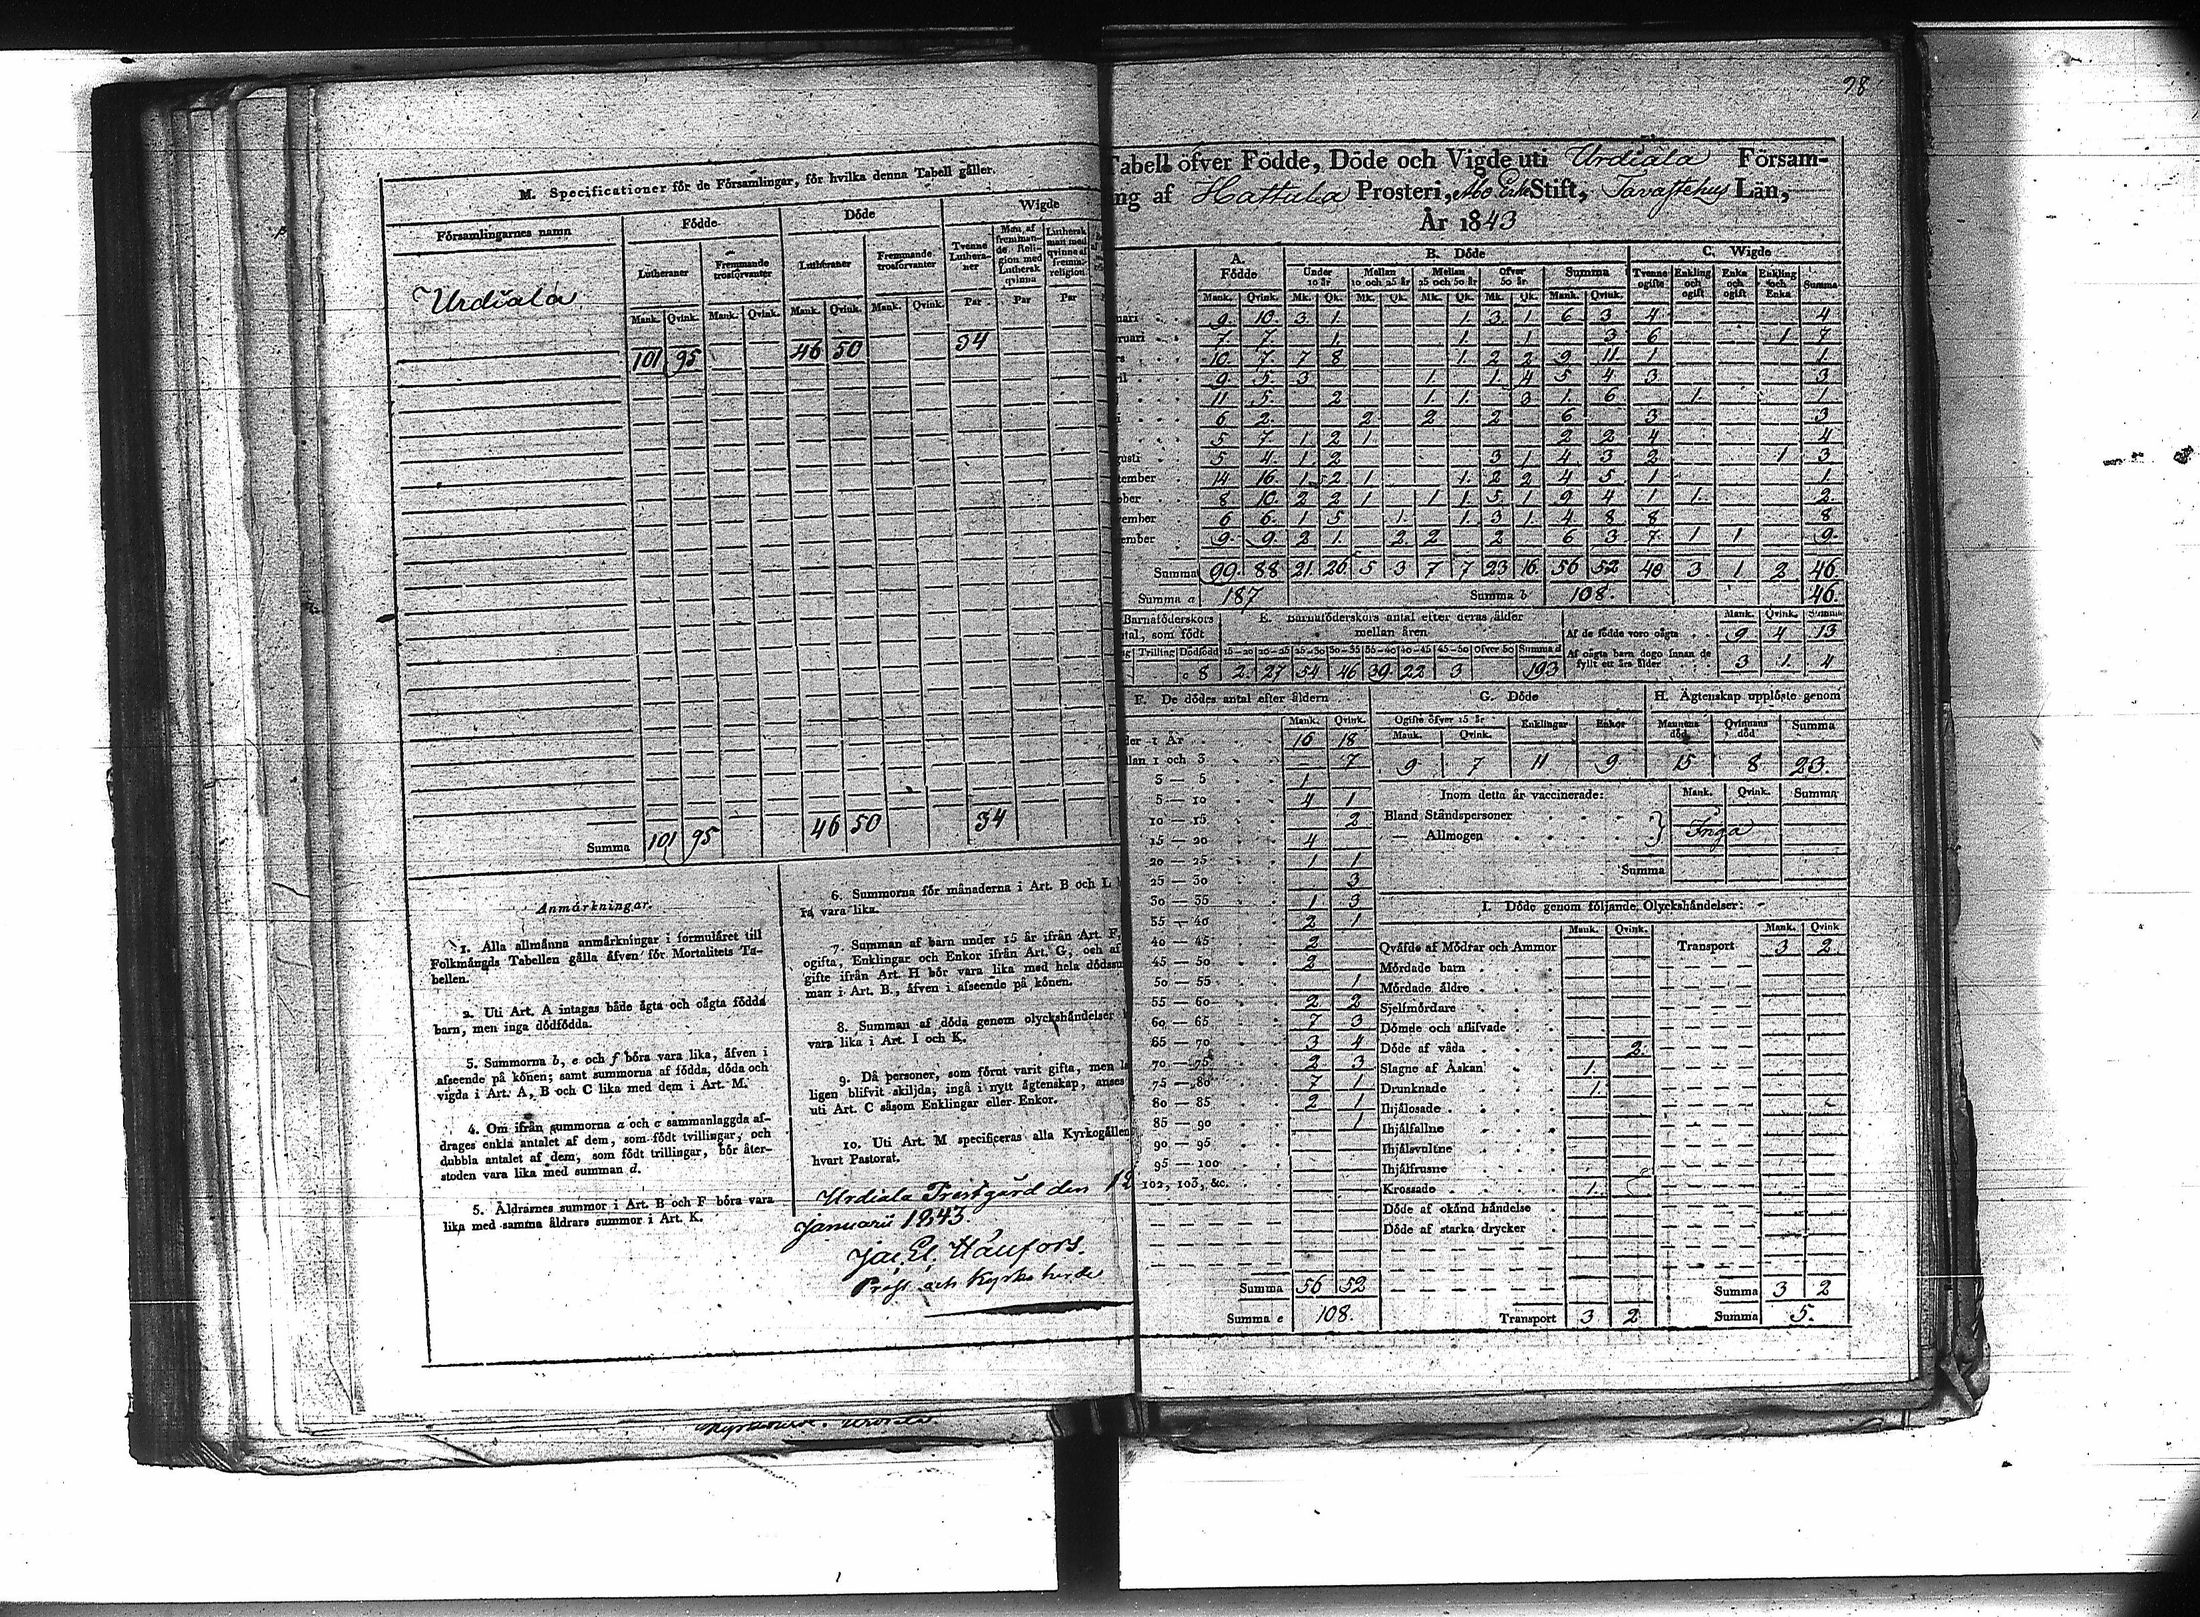 98
M. Specificationer för de Församlingar, för hvilka denna Tabell gäller.
Församlingarnes namn
Födde Döde Wigde
Lutheraner Fremmande trosförvanter Lutheraner Fremmande trosförvanter Tvenne Lutheraner Man af fremmande Religion med Luthersk qvinna Luthersk man med qvinna af fremm. religion
Mank. Qvink. Mank. Qvink. Mank. Qvink. Mank. Qvink. Par Par Par
Urdiala
101 95 46 50 34
Summa 101 95 46 50 34
Anmärkningar.
1. Alla allmänna anmärkningar i formuläret till
Folkmängds Tabellen gälla äfven för Mortalitets Ta-
bellen.
2. Uti Art. A intagas både ägta och oägta födda
barn, men inga dödfödda.
3. Summorna b, e och f böra vara lika, äfven i
afseende på könen; samt summorna af födda, döda och
vigda i Art. A, B och C lika med dem i Art. M.
4. Om ifrån summorna a och c sammanlagda af-
drages enkla antalet af dem, som födt tvillingar, och
dubbla antalet af dem, som födt trillingar, bör åter-
stoden vara lika med summan d.
5. Åldrarnes summor i Art. B och F böra vara
lika med samma åldrars summor i Art. K.
6. Summorna för månaderna i Art. B och L
ra vara lika.
7. Summan af barn under 15 år ifrån Art. F,
ogifta, Enklingar och Enkor ifrån Art. G, och af
gifte ifrån Art. H bör vara lika med hela dödssu
man i Art. B., äfven i afseende på könen.
8. Summan af döda genom olyckshändelser
vara lika i Art. I och K.
9. Då personer, som förut varit gifta, men
ligen blifvit skiljda, ingå i nytt ägtenskap, anses
uti Art. C såsom Enklingar eller Enkor.
10. Uti Art. M specificeras alla Kyrkogällen
hvart Pastorat.
Urdiala Prestgård den 12
Januarii 1843.
Prost och Kyrkoherde
Tabell öfver Födde, Döde och Vigde uti Urdiala Försam-
ng af Hattula Prosteri, Åbo Erke Stift, Tavastehus Län,
År 1843
A. Födde B. Döde C. Wigde
Under 10 år Mellan 10 och 25 år Mellan 25 och 50 år Öfver 50 år Summa Tvenne ogifte Enkling och ogift Enka och ogift Enkling och Enka Summa
Mank. Qvink. Mk. Qk. Mk. Qk. Mk. Qk. Mk. Qk. Mank. Qvink.
nari 9 10 3 1 1 3 1 6 3 4 4
ruari 7 7 1 1 1 3 6 1 7
rs 10 7 7 8 1 2 2 9 11 1 1
il 9 5 3 1 1 4 5 4 3 3
11 5 2 1 1 3 1 6 1 1
i 6 2 2 2 2 6 3 3
5 7 1 2 1 2 2 4 4
gusti 5 4 1 2 3 1 4 3 2 1 3
tember 14 16 1 2 1 1 2 2 4 5 1 1
ober 8 10 2 2 1 1 1 5 1 9 4 1 1 2
vember 6 6 1 5 1 1 3 1 4 8 8 8
ember 9 9 2 1 2 2 2 6 3 7 1 1 9
Summa 99 88 21 26 5 3 7 7 23 16 56 52 40 3 1 2 46
Summa a 187 Summa b 108. 46.
Barnaföderskors
tal, som födt
Trilling Dödfödd
8
E. Barnaföderskors antal efter deras ålder
mellan åren
15—20 20—25 25—30 30—35 35—40 40—45 45—50 Öfver 50 Summa d
2 27 54 46 39 22 3 193
Mank. Qvink. Summa
Af de födde voro oägta 9 4 13
Af oägta barn dogo innan de
fyllt ett års ålder 3 1 4
F. De dödes antal efter åldern
Mank. Qvink.
der 1 År 16 18
llan 1 och 3 7
3 — 5 1
5 — 10 4 1
10 — 15 2
15 — 20 4
20 — 25 1 1
25 — 30 3
30 — 35 1 3
35 — 40 2 1
40 — 45 2
45 — 50 2
50 — 55 1
55 — 60 2 2
60 — 65 7 3
65 — 70 3 4
70 — 75 2 3
75 — 80 7 1
80 — 85 2 1
85 — 90 1
90 — 95
95 — 100
102, 103, &c.
Summa 56 52
Summa e 108.
G. Döde
Ogifte öfver 15 år Enklingar Enkor
Mank. Qvink.
9 7 11 9
H. Ägtenskap upplöste genom
Mannens död Qvinnans död Summa
15 8 23.
Inom detta år vaccinerade: Mank. Qvink. Summa
Bland Ståndspersoner
— Allmogen
Inga
Summa
I. Döde genom följande Olyckshändelser:
Mank. Qvink. Mank. Qvink.
Qväfde af Mödrar och Ammor Transport 3 2
Mördade barn
Mördade äldre
Sjelfmördare
Dömde och aflifvade
Döde af våda 2.
Slagne af Åskan 1.
Drunknade 1.
Ihjälosade
Ihjälfallne
Ihjälsvultne
Ihjälfrusne
Krossade 1.
Döde af okänd händelse
Döde af starka drycker
Summa 3 2
Transport 3 2 Summa 5.